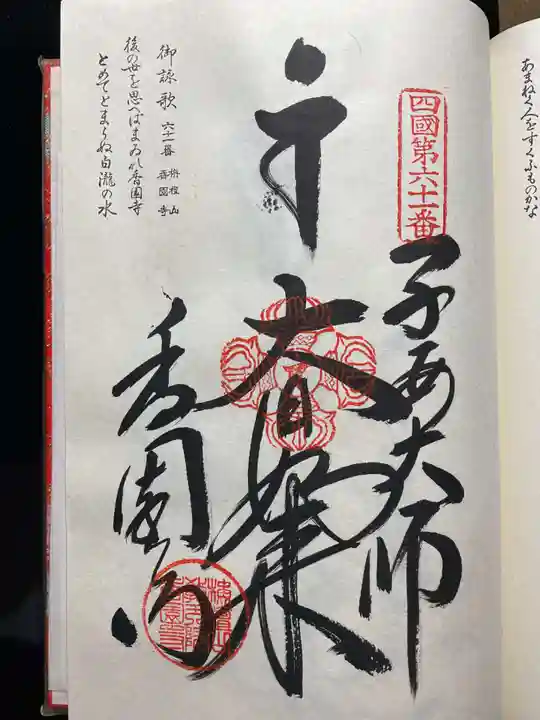 あまねく人をすくふものかな
四國第六十一番
子安大師
大日如来
香園寺
御詠歌 六十一番 栴檀山 香園寺
後の世を思へばまゐれ香園寺
とめてとまらぬ白瀧の水